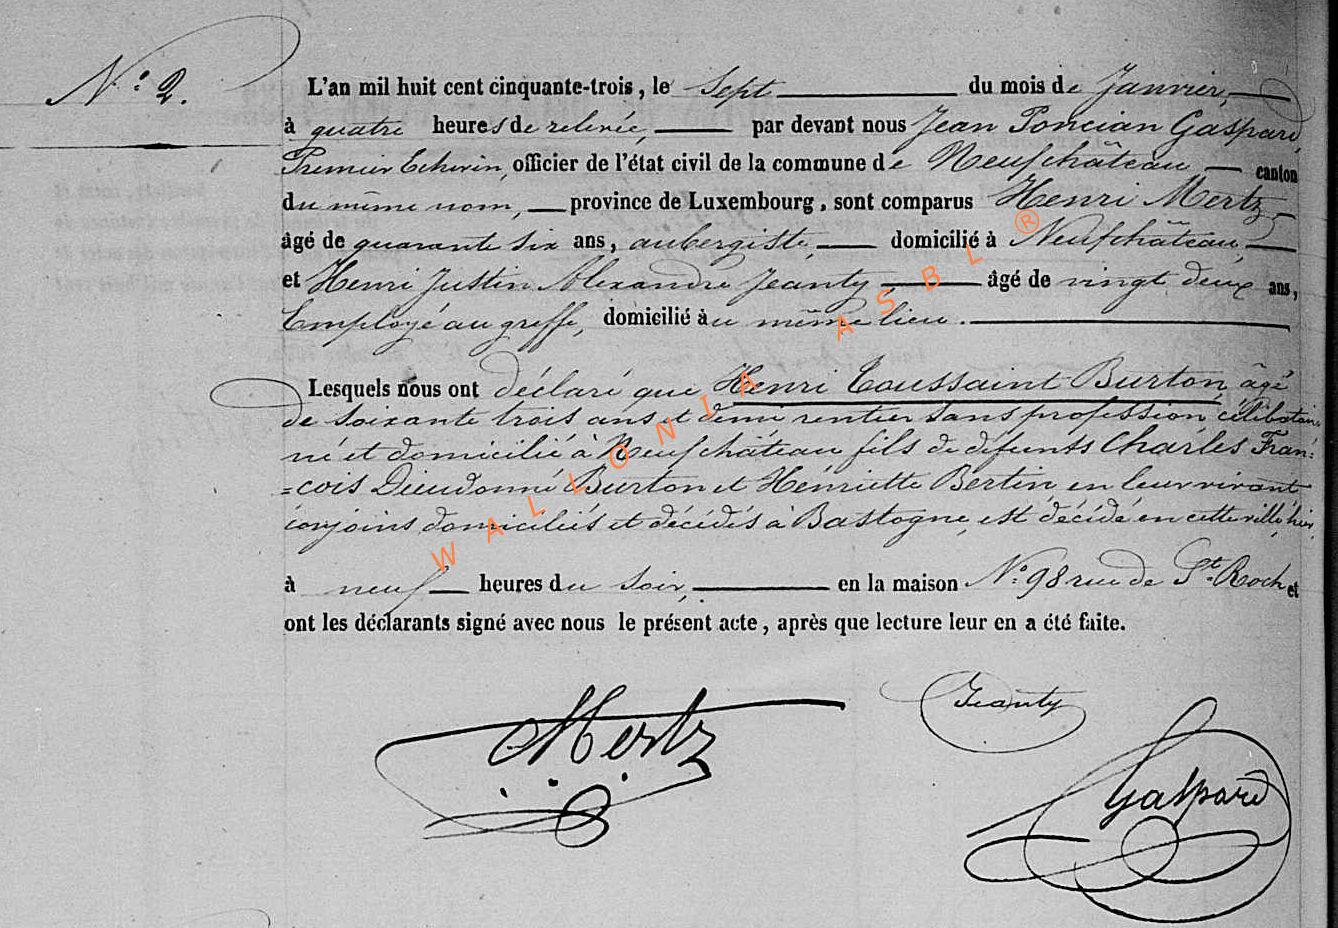 N.° 2.
L'an mil huit cent cinquante-trois, le sept du mois de Janvier,
à quatre heures de relevée, par devant nous Jean Poncian Gaspard,
Premier Echevin, officier de l'état civil de la commune de Neufchâteau canton
du même nom, province de Luxembourg, sont comparus Henri Mertz,
âgé de quarante six ans, aubergiste, domicilié à Neufchâteau,
et Henri Justin Alexandre Jeanty, âgé de vingt deux ans,
Employé au greffe, domicilié àu même lieu.
Lesquels nous ont déclaré que Henri Toussaint Burton, âgé
de soixante trois ans et demi rentier sans profession, célibataire
né et domicilié à Neufchâteau fils de défunts Charles Fran=
=çois Dieudonné Burton et Henriette Bertin en leur vivant
conjoins domiciliés et décédés à Bastogne, est décédé en cette ville, hier,
à neuf heures du soir, en la maison N.° 98 rue de St. Roch et
ont les déclarants signé avec nous le présent acte, après que lecture leur en a été faite.
Mertz
Jeanty
Gaspard
WALLONIA ASBL ®